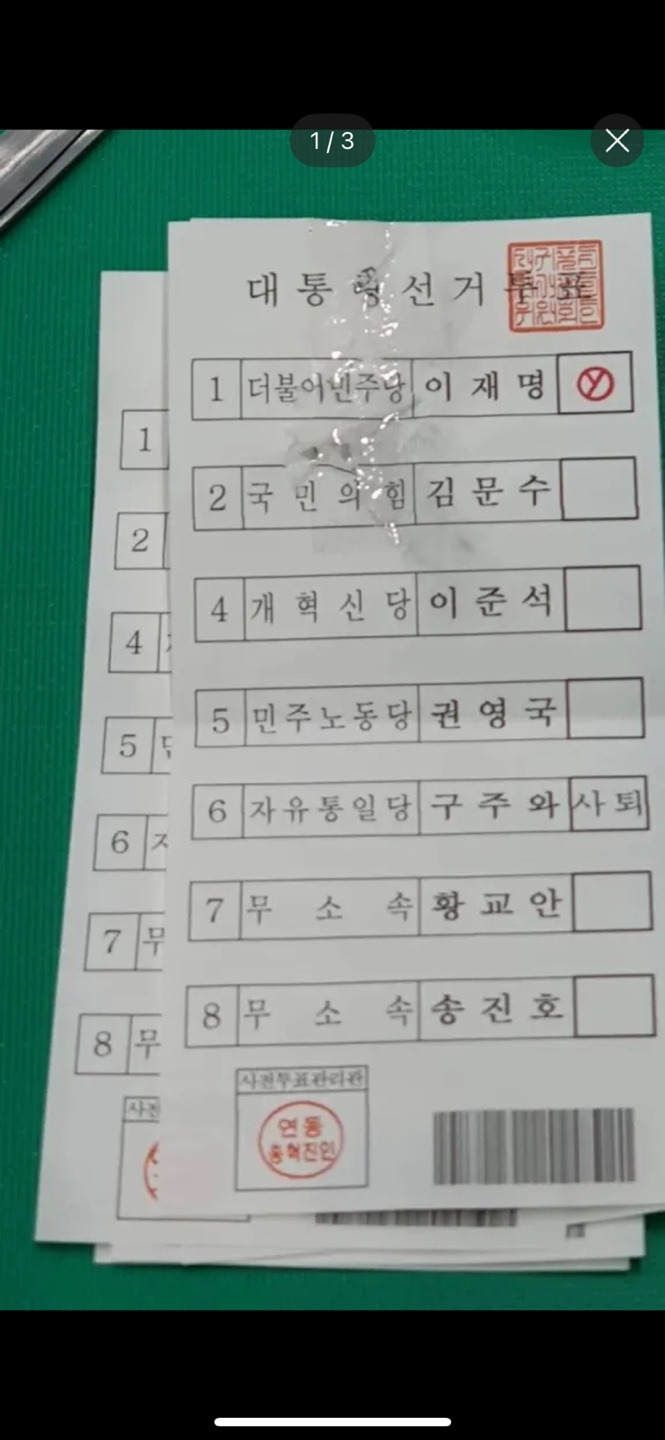 1 / 3
대통령선거투표
1 더불어민주당 이재명
2 국민의힘 김문수
4 개혁신당 이준석
5 민주노동당 권영국
6 자유통일당 구주와 사퇴
7 무소속 황교안
8 무소속 송진호
사전투표관리관
연동
1
2
4
5
6
7 무
8 무
사전